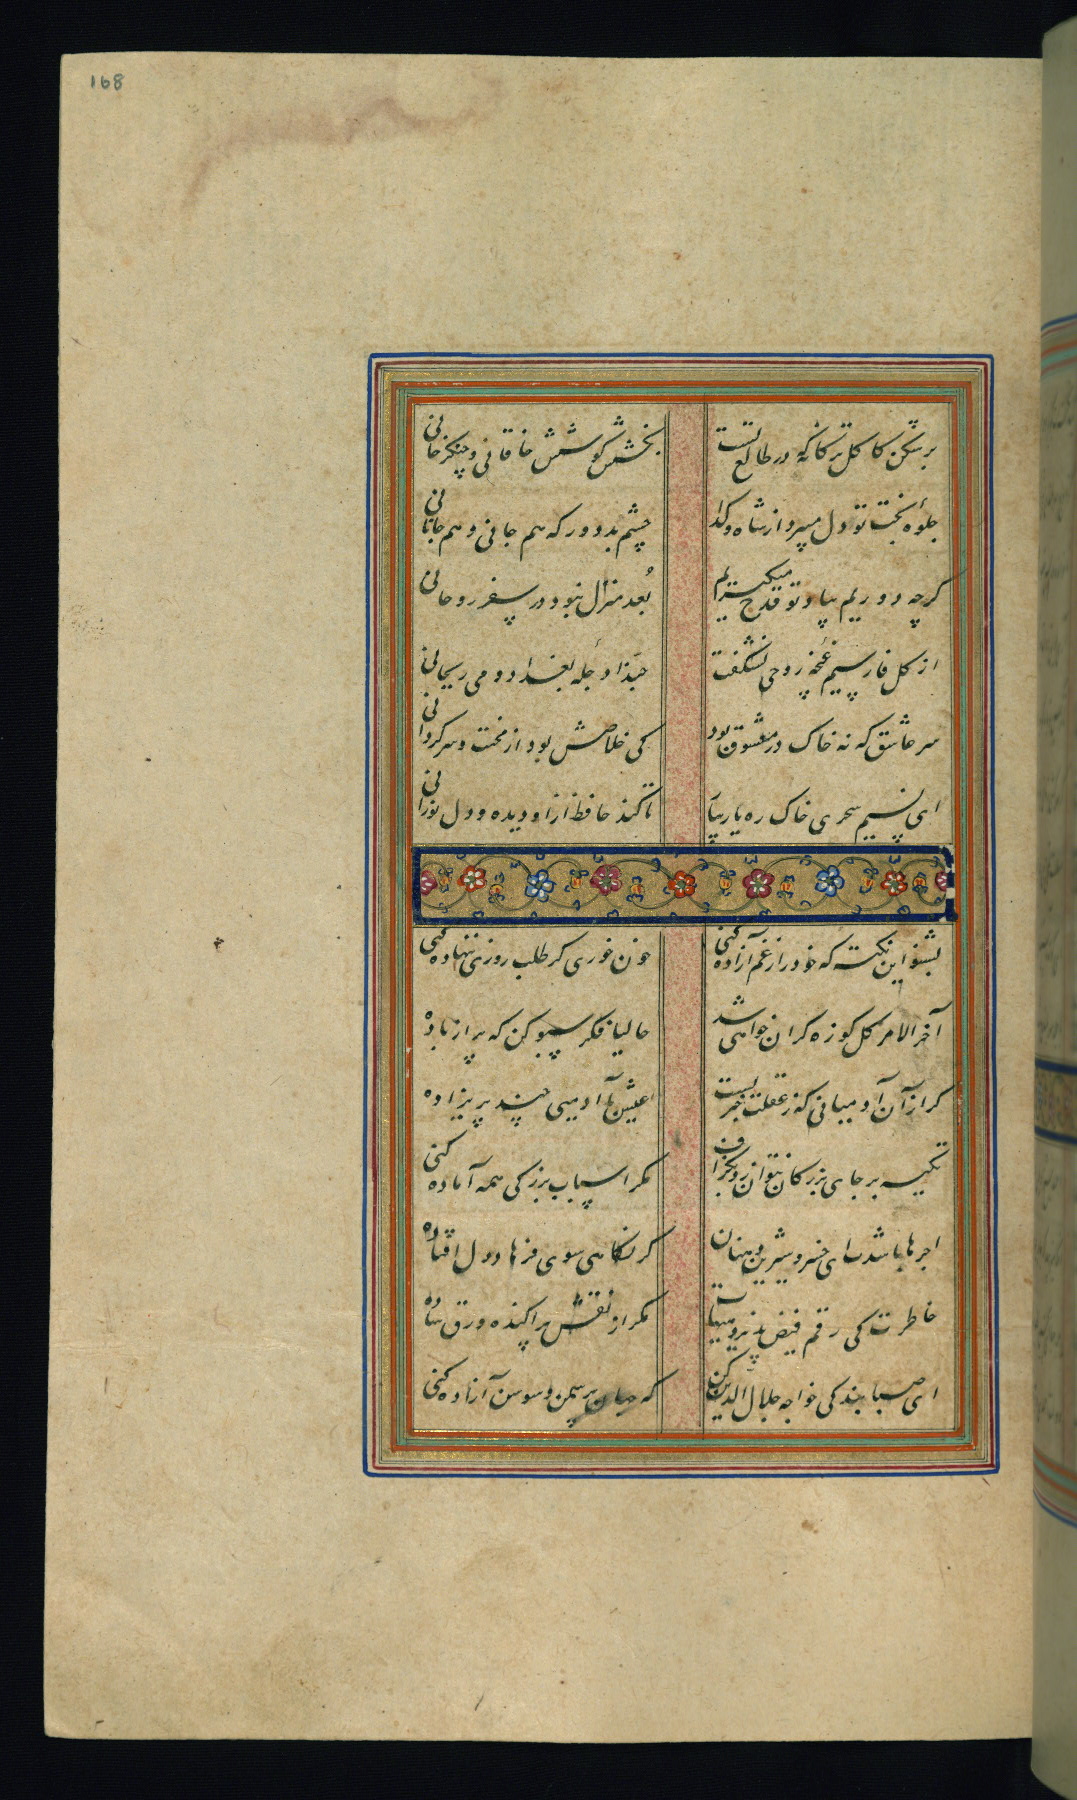 168
برشکن کاکل ترکانه که در طالع تست بخشش و کوشش خاقانی و چنکز خانی
جلوه بخت تو دل میبرد از شاه و کدا چشم بد دور که هم جانی و هم جانانی
کرچه دوریم بیاد تو قدح میکیریم بعد منزل نبود در سفر روحانی
از کل فارسیم غنچه روحی نشکفت حبذا دجله بغداد و می ریحانی
سر عاشق که نه خاک در معشوق بود کی خلاصش بود از محنت و سرکردانی
ای نسیم سحری خاک ره یار بیار تا کند حافظ ازو دیده و دل نورانی
بشنو این نکته که خود را ز غم آزاده کنی خون خوری کر طلب روزی ننهاده کنی
آخر الامر کل کوزه کران خواهی شد حالیا فکر سبو کن که پر از باده
کر از آن آدمیانی که ز عقلت خبر یست عیش با آدمیی چند پریزاده
تکیه بر جای بزرکان نتوان زد بکزاف مکر اسباب بزرکی همه آماده کنی
اجرها باشدت ای خسرو شیرین دهنان کر نکاهی سوی فرهاد دل افتاده
خاطرت کی رقم فیض پذیرد هیهات مکر از نقش پراکنده ورق ساده
ای صبا بندکی خواجه جلال الدین کن که جهان پر سمن و سوسن آزاده کنی